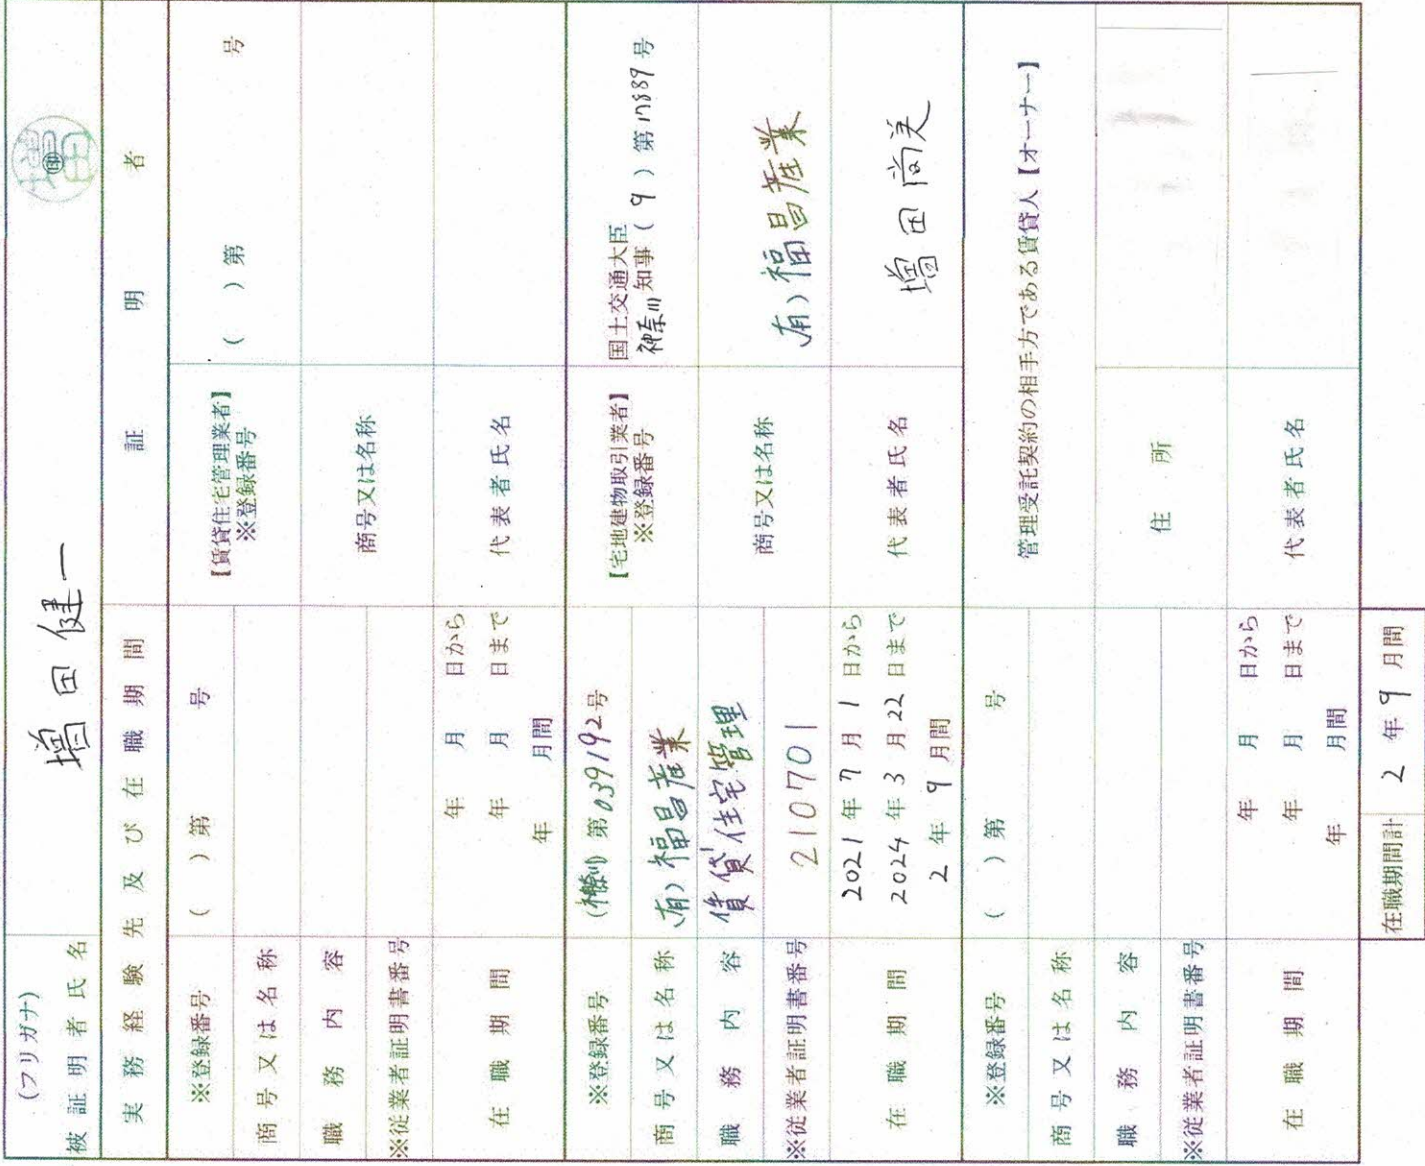 (フリガナ)
被証明者氏名 増田健一 ㊞ 増田
実務経験先及び在職期間 証明者
※登録番号 ( )第 号
商号又は名称
職務内容
※従業者証明書番号
在職期間 年 月 日から
年 月 日まで
年 月間
【賃貸住宅管理業者】
※登録番号 ( )第 号
商号又は名称
代表者氏名
※登録番号 (神奈川)第039192号
商号又は名称 (有)福昌産業
職務内容 賃貸住宅管理
※従業者証明書番号 210701
在職期間 2021年7月1日から
2024年3月22日まで
2年9月間
【宅地建物取引業者】
※登録番号
国土交通大臣
神奈川知事(9)第17889号
商号又は名称 (有)福昌産業
代表者氏名 増田尚美
※登録番号 ( )第 号
商号又は名称
職務内容
※従業者証明書番号
在職期間 年 月 日から
年 月 日まで
年 月間
管理受託契約の相手方である賃貸人【オーナー】
住所
代表者氏名
在職期間計 2年9月間